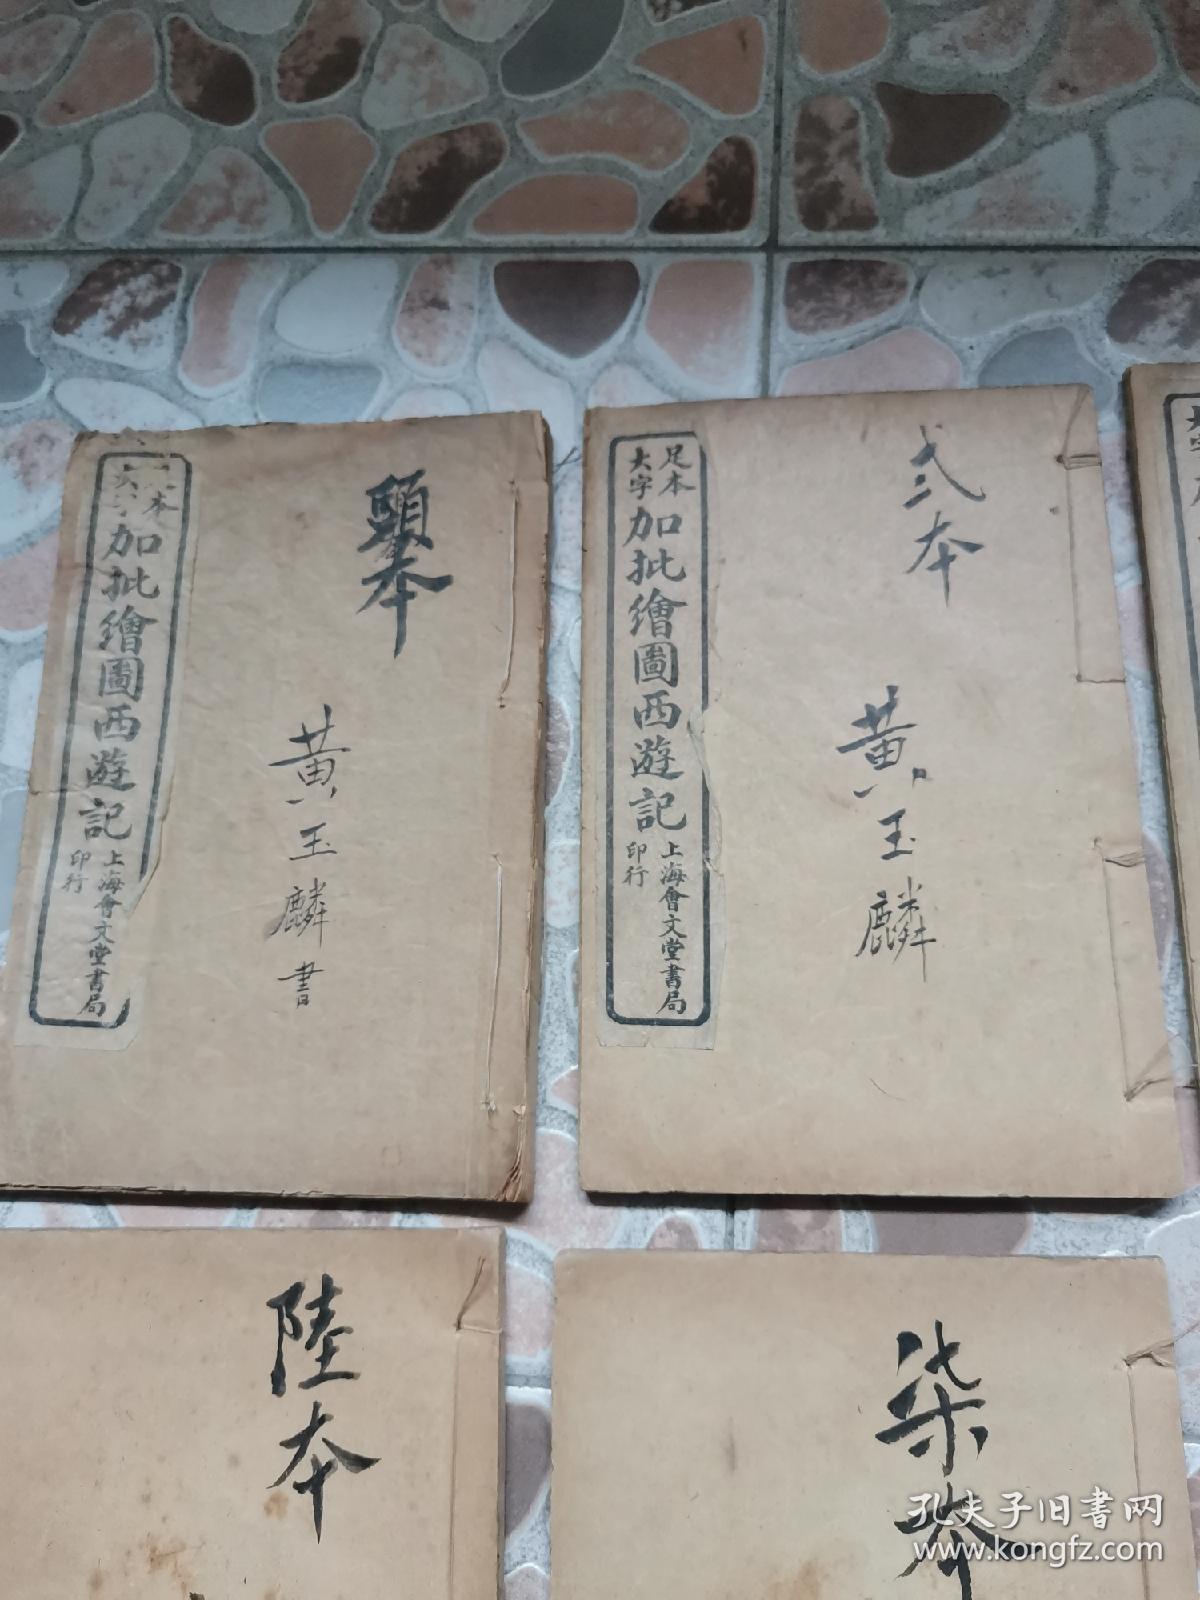 足本
大字
加批繪圖西遊記
上海會文堂書局
印行
頭本
黃玉麟書
足本
大字
加批繪圖西遊記
上海會文堂書局
印行
弍本
黃玉麟
陸本
柒本
孔夫子旧书网
www.kongfz.com